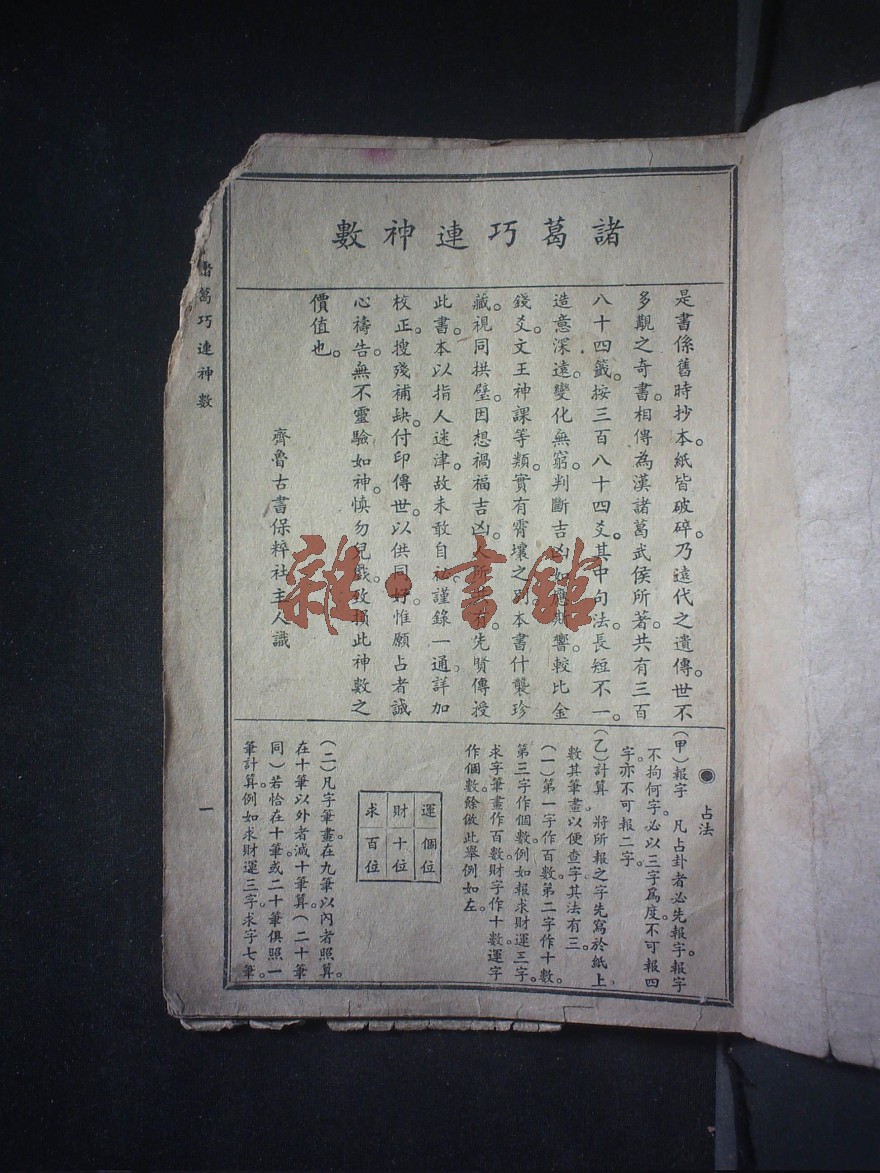 諸葛巧連神數
是書係舊時抄本。紙皆破碎。乃遠代之遺傳。世不
多觀之奇書。相傳為漢諸葛武侯所著。共有三百
八十四籤。按三百八十四爻。其中句法。長短不一。
造意深遠。變化無窮。判斷吉凶。如應斯響。較比金
錢爻。文王神課等類。實有霄壤之別。本書什襲珍
藏。視同拱璧。因想禍福吉凶。人所共有。先賢傳授
此書。本以指人迷津。故未敢自祕。謹錄一通。詳加
校正。搜殘補缺。付印傳世。以供同好。惟願占者誠
心禱告。無不靈驗如神。慎勿兒戲。致損此神數之
價值也。
齊魯古書保粹社主人識
●占法
(甲)報字 凡占卦者必先報字。報字
不拘何字。必以三字為度。不可報四
字。亦不可報二字。
(乙)計算 將所報之字先寫於紙上。
數其筆畫。以便查字。其法有三。
(一)第一字作百數。第二字作十數。
第三字作個數。例如報求財運三字。
求字筆畫作百數。財字作十數。運字
作個數。餘倣此。舉例如左。
運 個位
財 十位
求 百位
(二)凡字筆畫在九筆以內者照算。
在十筆以外者減十筆算。(二十筆
同)若恰在十筆。或二十筆。俱照一
筆計算。例如求財運三字。求字七筆。
諸葛巧連神數
一
雜·書館